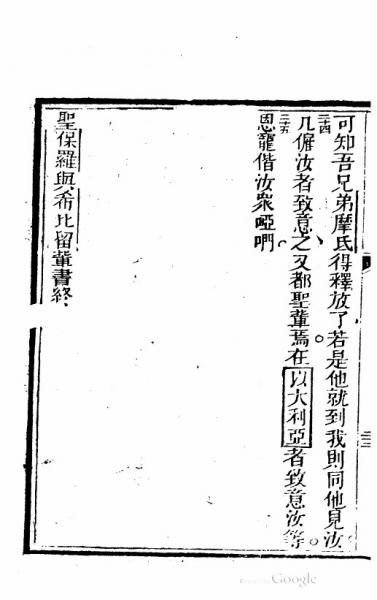 可知吾兄弟摩氏得釋放了若是他就到我則同他見汝
二十四
凡僱汝者致意之又都聖輩焉在以大利亞者致意汝等
二十五
恩寵偕汝衆啞咧
聖保羅與希比留輩書終
二三
Google